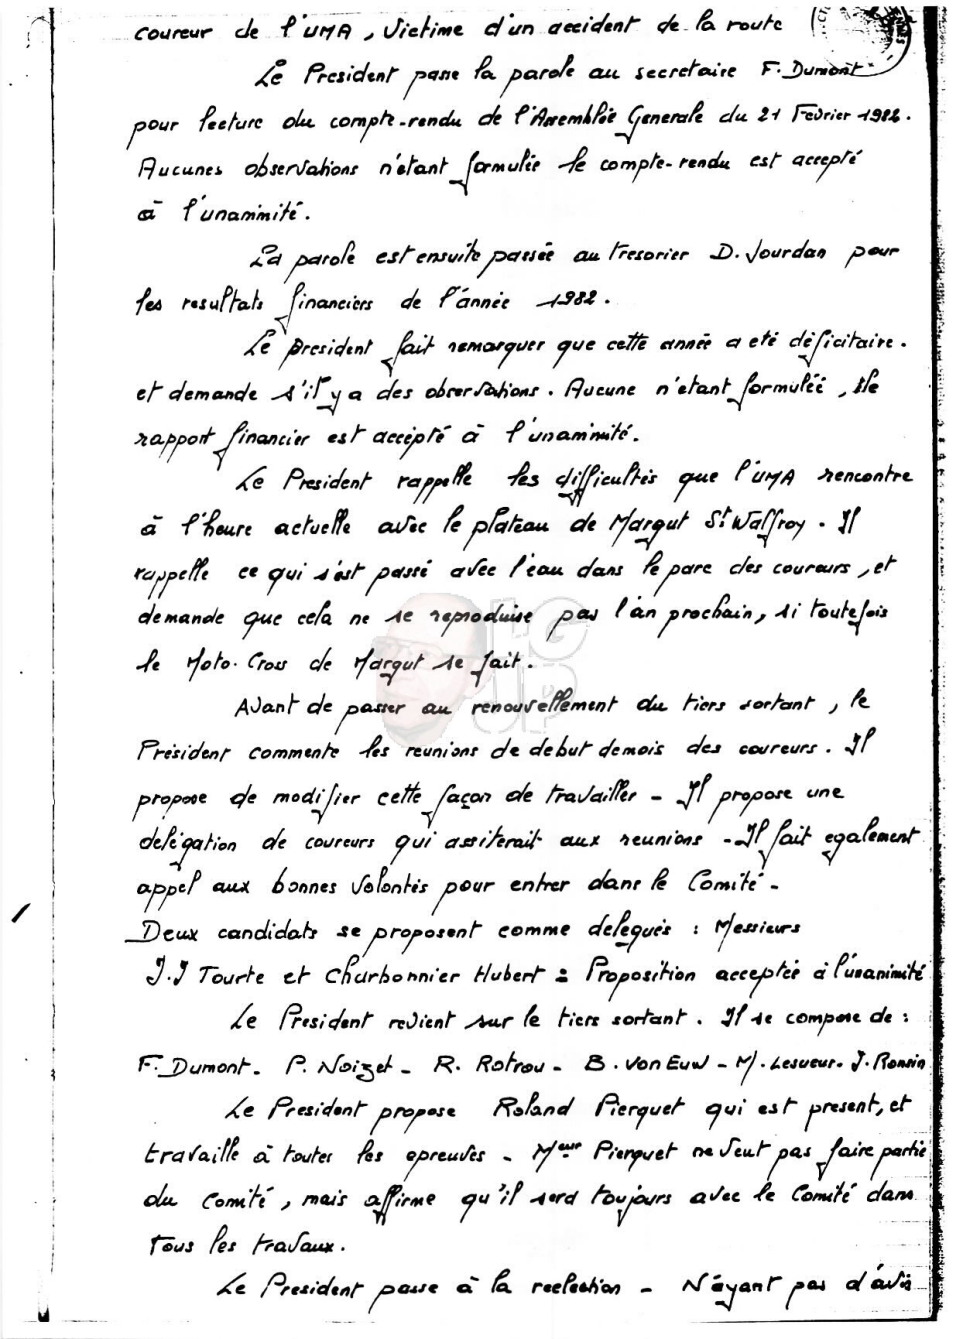 coureur de l'UMA, victime d'un accident de la route
Le President passe la parole au secretaire F. Dumont
pour lecture du compte-rendu de l'Assemblée Generale du 21 Fevrier 1982.
Aucunes observations n'etant formulée le compte-rendu est accepté
à l'unanimité.
La parole est ensuite passée au Tresorier D. Jourdan pour
les resultats financiers de l'année 1982.
Le president fait remarquer que cette année a eté déficitaire.
et demande s'il y a des observations. Aucune n'etant formulée, le
rapport financier est accépté à l'unanimité.
Le President rappelle les difficultés que l'UMA rencontre
à l'heure actuelle avec le plateau de Margut St Walfroy. Il
rappelle ce qui s'est passé avec l'eau dans le parc des coureurs, et
demande que cela ne se reproduise pas l'an prochain, si toutefois
le Moto-Cross de Margut se fait.
Avant de passer au renouvellement du tiers sortant, le
Président commente les reunions de debut de mois des coureurs. Il
propose de modifier cette façon de travailler - Il propose une
delégation de coureurs qui assiterait aux reunions - Il fait egalement
appel aux bonnes volontés pour entrer dans le Comité -
Deux candidats se proposent comme delegués : Messieurs
J.J Tourte et Charbonnier Hubert = Proposition acceptée à l'unanimité
Le President revient sur le tiers sortant. Il se compose de :
F. Dumont - P. Noizet - R. Rotrou - B. Von Euw - M. Lesueur - J. Ronsin
Le President propose Roland Pierquet qui est present, et
travaille à toutes les epreuves - Meur Pierquet ne veut pas faire partie
du Comité, mais affirme qu'il sera toujours avec le Comité dans
tous les travaux.
Le President passe à la reelection - N'ayant pas d'avis
LG
JP